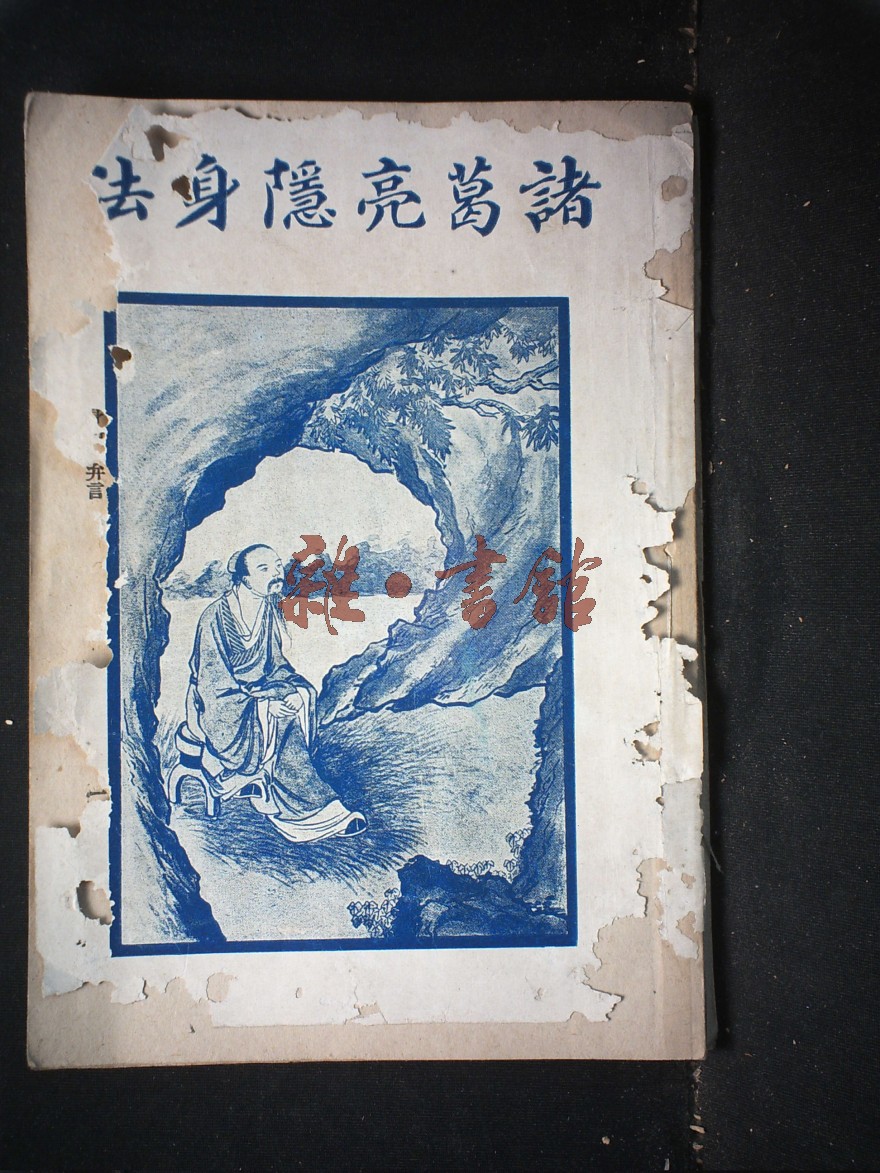 諸葛亮隱身法
雜·書館
弁言
一